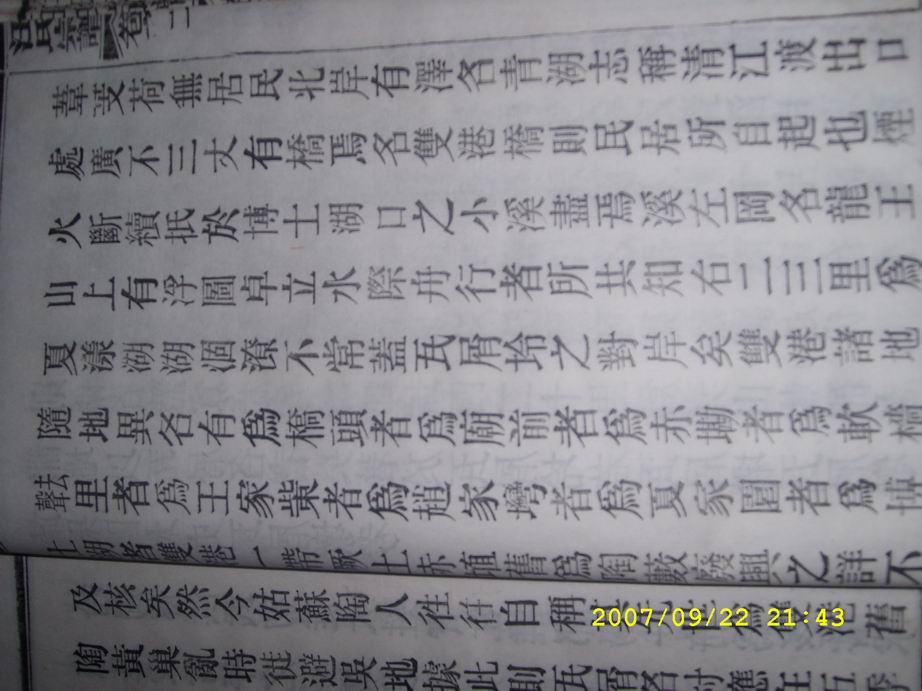 氏宗譜 卷二
葦芰荷無居民北岸有澤名青湖志稱清江渡出口
處廣不三丈有橋焉名雙港橋則民居所自起也煙
火斷續抵於博士湖口之小溪盡焉溪左岡名龍王
山上有浮圖卓立水際舟行者所共知右二三里為
夏漾湖湖涸潦不常蓋瓦屑坽之對岸矣雙港諸地
隨地異名有為橋頭者為廟前者為赤塸者為軟檣
去聲里者為王家柴者為趙家灣者為夏家園者為博
士湖者雙港一帶厥土赤埴舊為陶藪廢興之詳不
及核矣然今姑蘇陶人往往自稱舊
陶黃巢亂時徙避吳地據此則瓦屑名村應在五季
2007/09/22 21:43